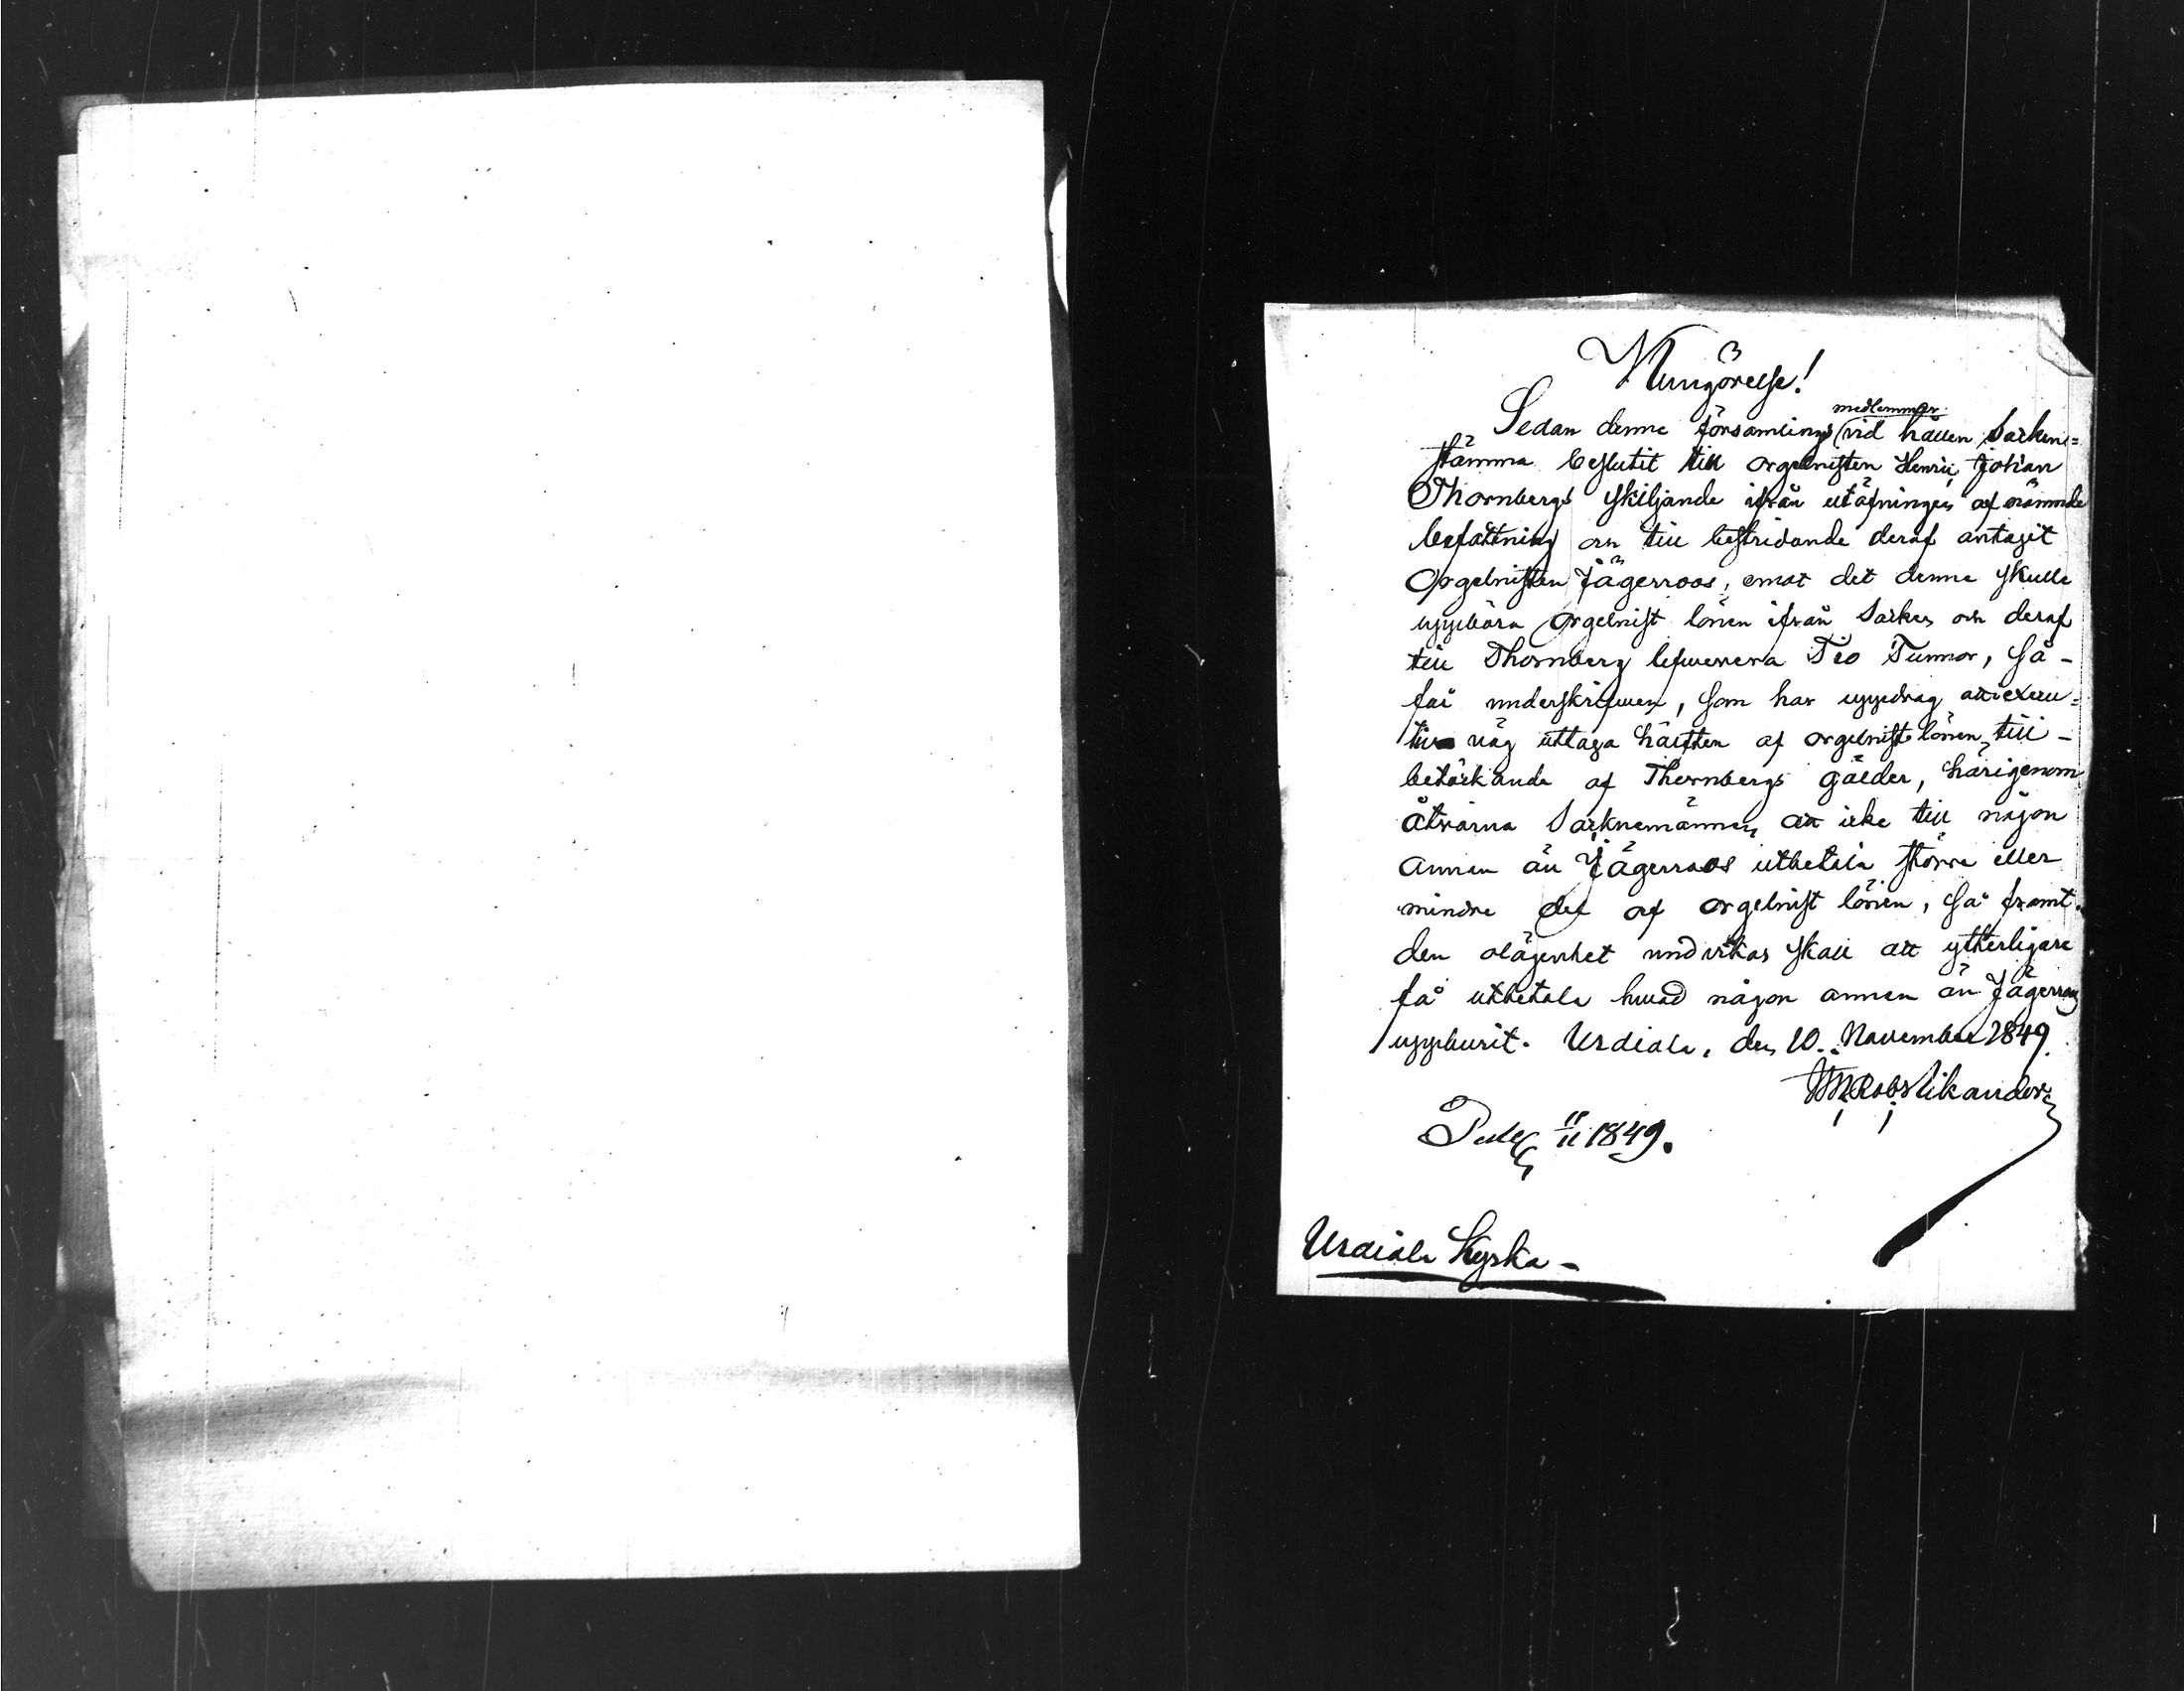 Kungörelse!
Sedan denne församlings medlemmar vid hållen Sockne=
stämma beslutit till orgelnisten Henric Johan
Thornbergs skiljande ifrån utöfningen af nämnde
befattning och till bestridande deraf antagit
Orgelnisten Jägerroos, emot det denne skulle
uppbära Orgelnist lönen ifrån Socken och deraf
till Thornberg lefwerera Tio Tunnor, Så-
får underskrifwen, som har uppdrag att i exeku=
tiv väg uttaga hälften af orgelnist lönen till-
betäckande af Thornbergs gälder, härigenom
åtvarna Socknemännen att icke till någon
annan än Jägerroos utbetala större eller
mindre del af orgelnist lönen, så framt
den olägenhet undvikas skall att ytterligare
få utbetala hwad någon annan än Jägerroos
uppburit. Urdiala, den 10. November 1849.
Rob Nikander
11/11 1849.
Urdiala Kyrka-